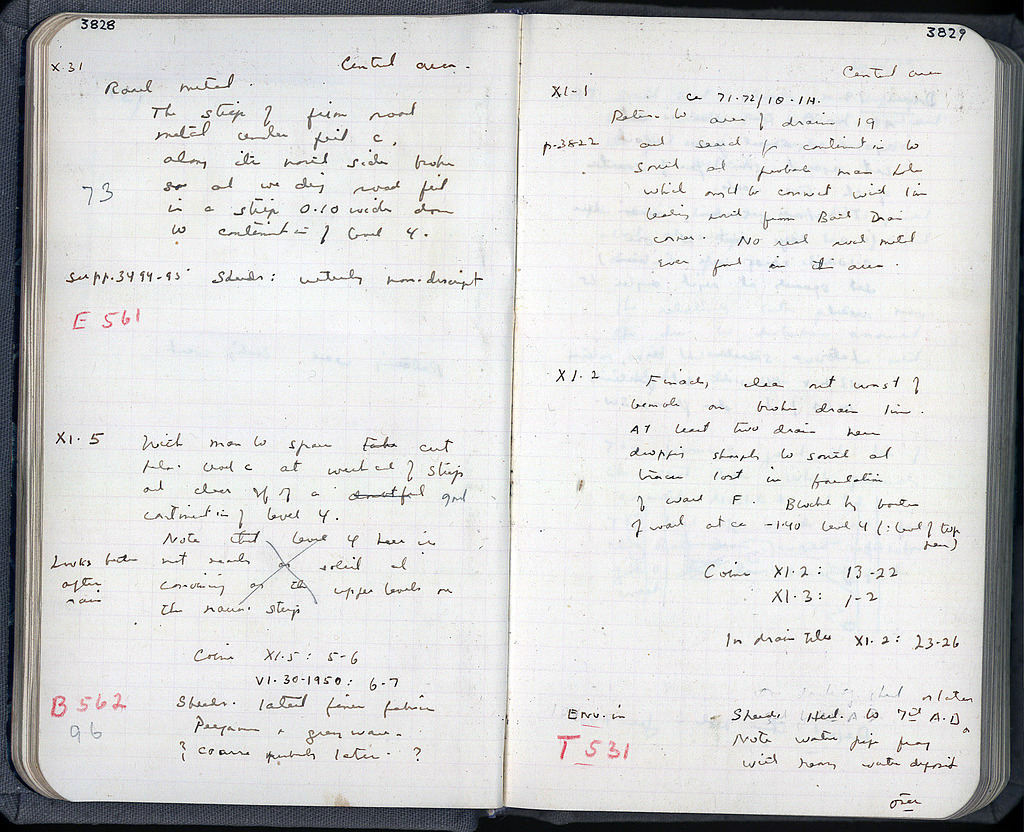 3828
X.31
Central area.
Road metal.
The strip of firm road
metal under fill c,
along its north side broke
so at we dug road fill
73
in a strip 0.10 wide down
to continuation of level 4.
See pp. 3494-95
Sherds: utterly non-descript
E 561
XI.5
With man to spare cut
at west end of strip
and clear off of a doubtful
continuation of level 4.
Note that level 4 here is
Looks better
after
rain
not nearly as solid
as the upper levels on
the narrow strip
Coins XI.5: 5-6
VI.30-1950: 6-7
B 562
96
Sherds. latest finer fabric
Pergam. & gray ware.
coarse later ?
3829
Central area
XI-1
ca 71.72/18.1A.
Return to area of drain 19
p.3822
and search for continuation to
south of probable main line
which must connect with line
leading south from East Drain
corner. No real road metal
ever found in the area.
XI.2
Finally clean out most of
on broken drain line.
At least two drain here
dropping sharply to south and
traces lost in foundation
of wall F. Blocked by bottom
of wall at ca -1.40 level 4 (: level of top
here)
Coins XI.2: 13-22
XI.3: 1-2
In drain tiles XI.2: 23-26
Env. in
T 531
Sherds. Hell. to 7th A.D.
or later
Note water pipe frag
with heavy water deposit
over